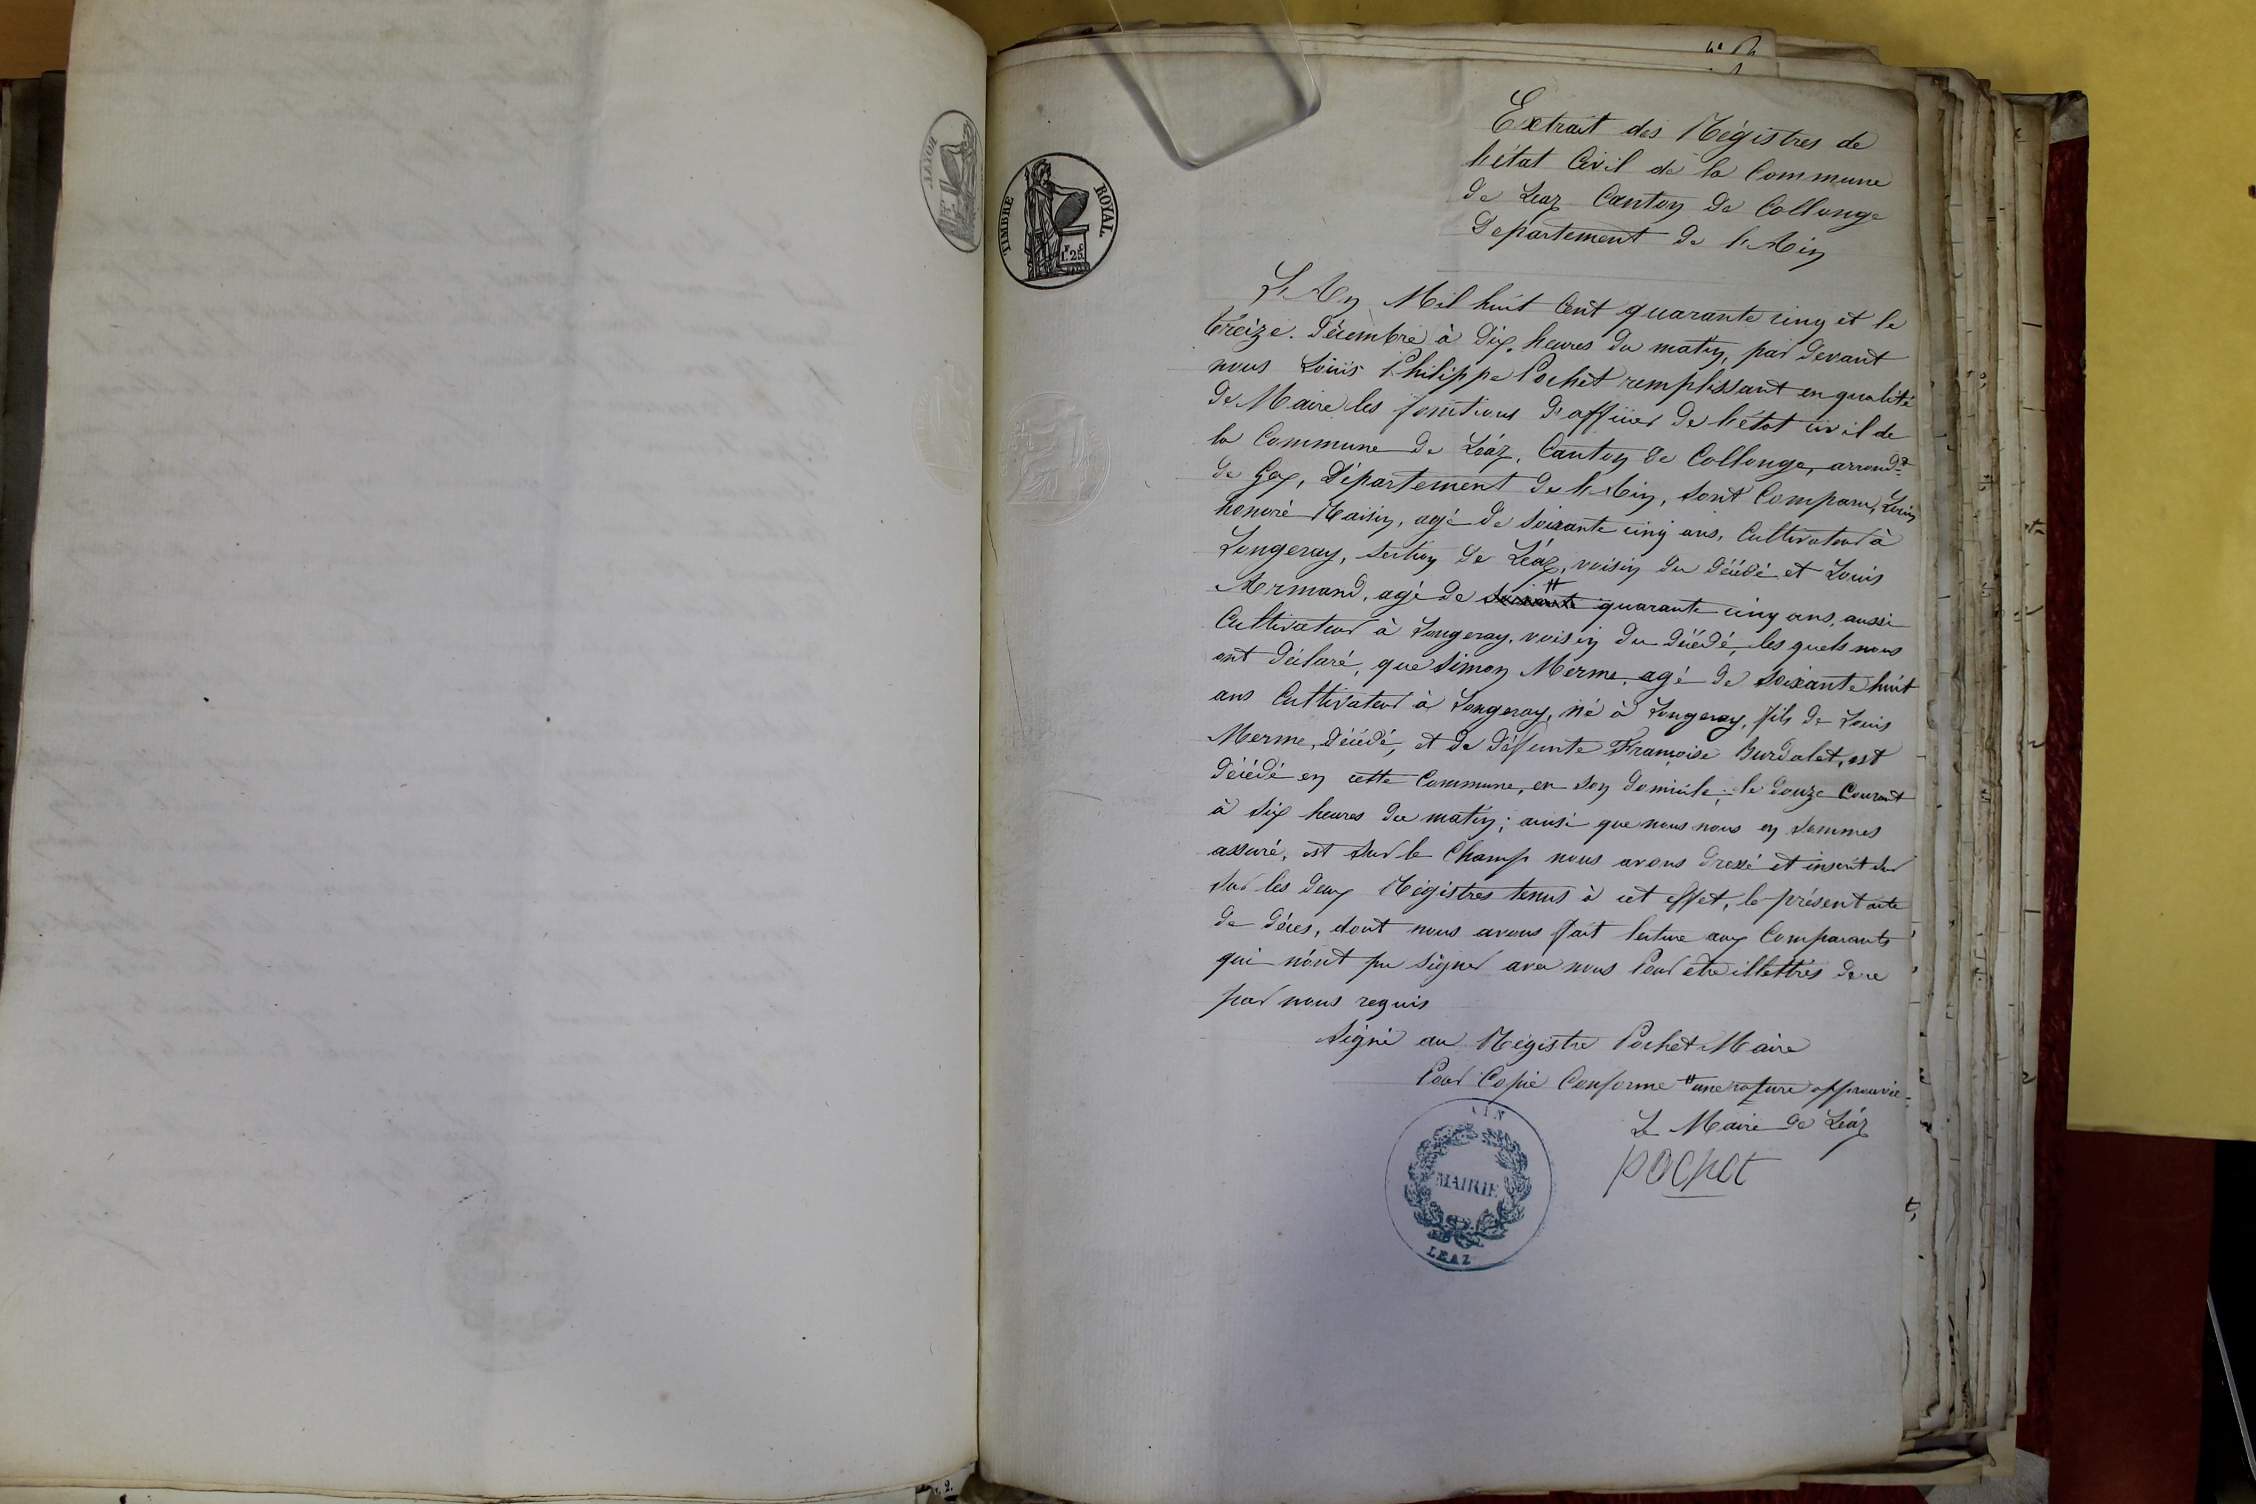 TIMBRE ROYAL
1.F 25.C
Extrait des Régistres de
l'état Civil de la Commune
de Leaz Canton de Collonge
Département de l'Ain
L'An Mil huit Cent quarante cinq et le
treize. Décembre à dix heures du matin, par devant
nous Louis Philippe Pochet remplissant en qualité
de Maire les fonctions d'officier de l'état civil de
la Commune de Léaz, Canton de Collonge, arrondt
de Gex, Département de l'Ain, sont Comparu, Louis
honoré Raisin, agé de soixante cinq ans, Cultivateur à
Longeray, section de Léaz, voisin du décédé et Louis
Armand, agé de quarante cinq ans, aussi
Cultivateur à Longeray, voisin du décédé, les quels nous
ont déclaré, que Simon Merme, agé de soixante huit
ans Cultivateur à Longeray, né à Longeray, fils de Louis
Merme, décédé, et de défunte Françoise Burdalet, est
décédé en cette Commune, en son domicile, le douze Courant
à six heures du matin; ainsi que nous nous en sommes
assuré, et sur le Champ nous avons dressé et inscrit sur
sur les deux Régistres tenus à cet effet, le présent acte
de déces, dont nous avons fait lecture aux Comparants
qui n'ont pu signer avec nous Pour etre illettrés de ce
par nous requis
Signé au Régistre Pochet Maire
Pour Copie Conforme # une rature approuvée
Le Maire de Léaz
pochet
AIN
MAIRIE
LEAZ